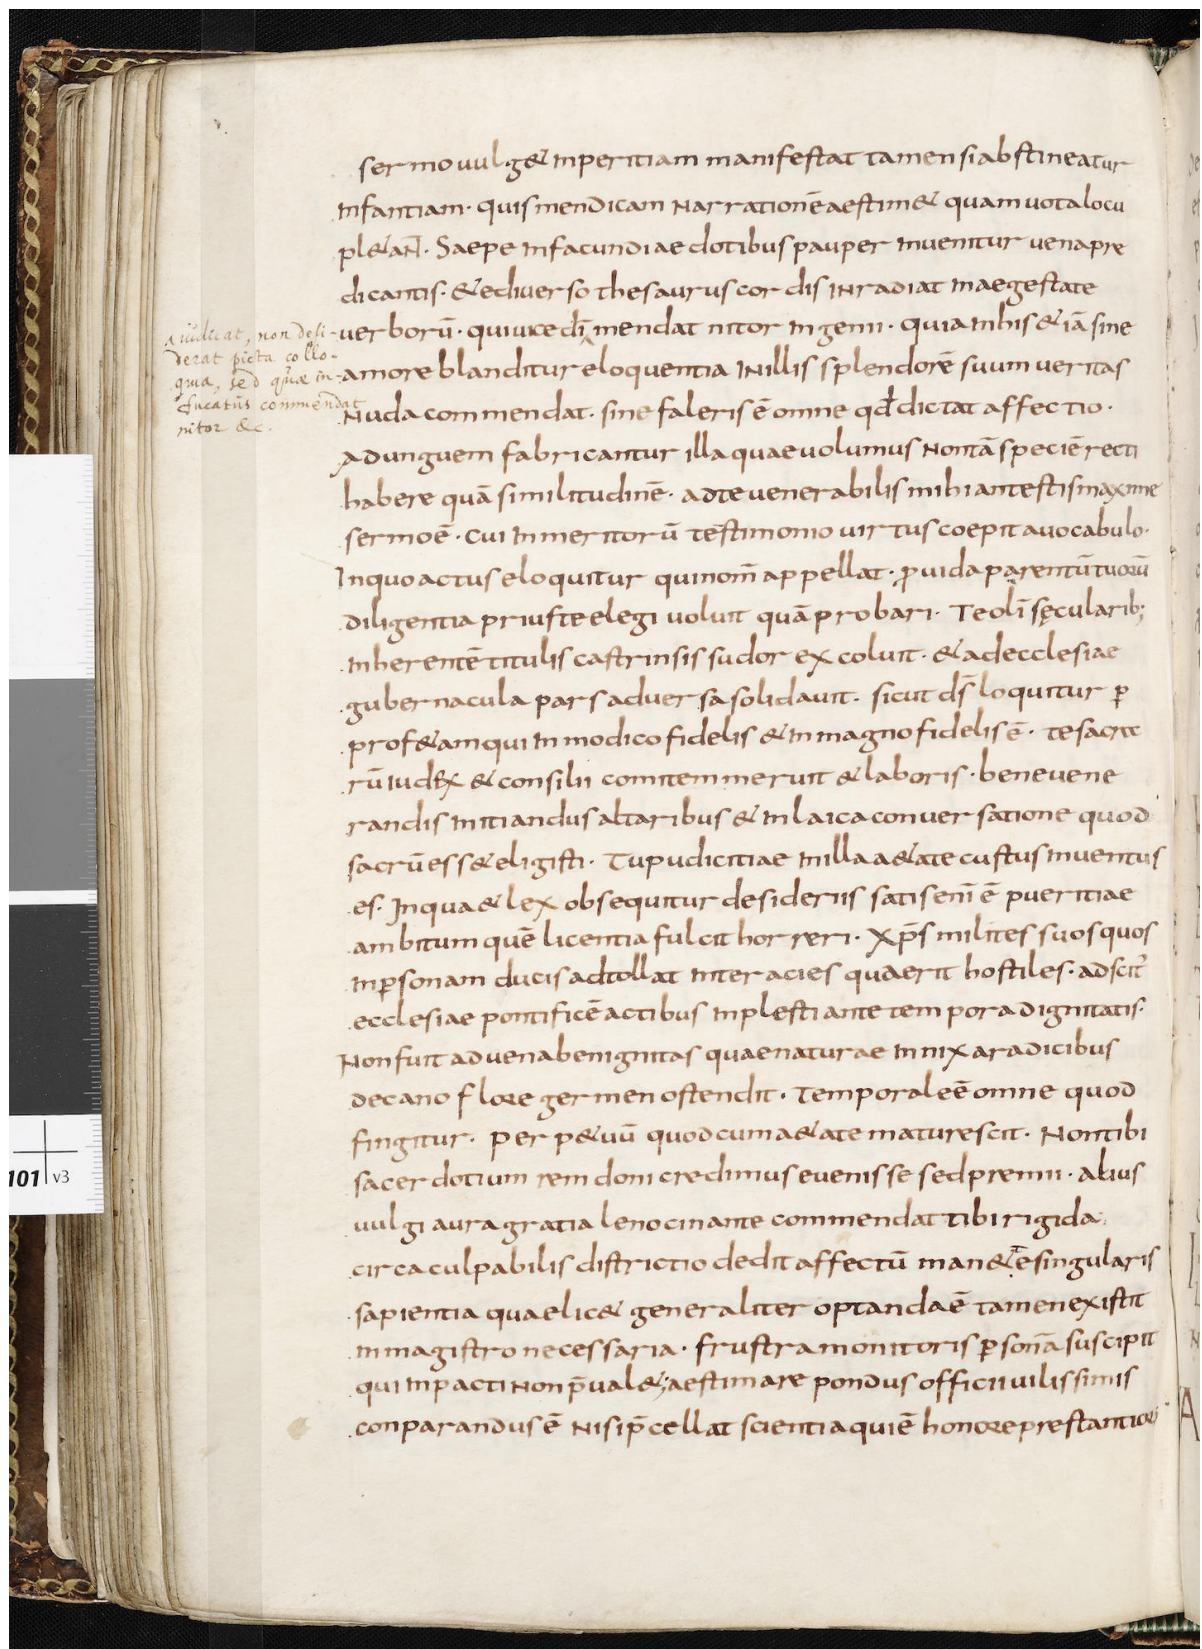 sermo uulg& inperitiam manifestat tamen si abstineatur
infantiam· quis mendicam narrationē aestim& quam uota locu
pl&aN̄· Saepe in facundiae dotibus pauper inuenitur uena pre
dicantis· & e diuerso thesaurus cordis inradiat in aegestate
uerborū· qui uice dī mendat nitor ingenii· quia in his & iā sine
amore blanditur eloquentia Inillis splendorē suum ueritas
Nuda commendat· sine faleris ē omne qd dictat affectio·
adunguem fabricantur illa quae uolumus Non tā speciē recti
habere quā similitudinē· ad te uenerabilis mihi antestis maxime
sermo ē· cui in meritorū testimonio uirtus coepit a uocabulo·
Inquo actus eloquitur qui nom̄ appellat· p̄uida parentū tuorū
diligentia prius te elegi uoluit quā probari· Te olī sęcularib;
inherentē titulis castrinsis sudor excoluit· & ad ecclesiae
gubernacula pars aduersa solidauit· sicut dś loquitur p̱
prof&am qui in modico fidelis & in magno fidelis ē· te sacrae
rū iudex & consilii comitem meruit & laboris· bene uene
randis initiandus altaribus & in laica conuersatione quod
sacrū ess& eligisti· Tu pudicitiae in illa a&ate custus inuentus
es· In qua & lex obsequitur desideriis satis enī ē pueritiae
ambitum quē licentia fulcit horreri· Xp̄s milites suos quos
inp̱sonam ducis adtollat inter acies quaerit hostiles· adscit'
ecclesiae pontificē actibus inplesti ante tempora dignitatis·
Non fuit aduena benignitas quae naturae innixa radicibus
decano flore germen ostendit· Temporale ē omne quod
fingitur· Per p&uū quod cum a&ate maturescit· Non tibi
sacerdotium rem doni credimus euenisse sed premii· alius
uulgi aura gratia lenocinante commendat tibi rigida
circa culpabilis districtio dedit affectū man& e singularis
sapientia quae lic& generaliter optanda ē tamen existit
in magistro necessaria· frustra monitoris p̱sonā suscipit
qui inpacti non p̄ual&; aestimare pondus officii uilissimis
conparandus ē Nisi p̄cellat scientia qui ē honore prestantior
a iudicat, non desi-
derat picta collo-
quia, sed quae in-
fucatus commendat
nitor &c.
101 v3